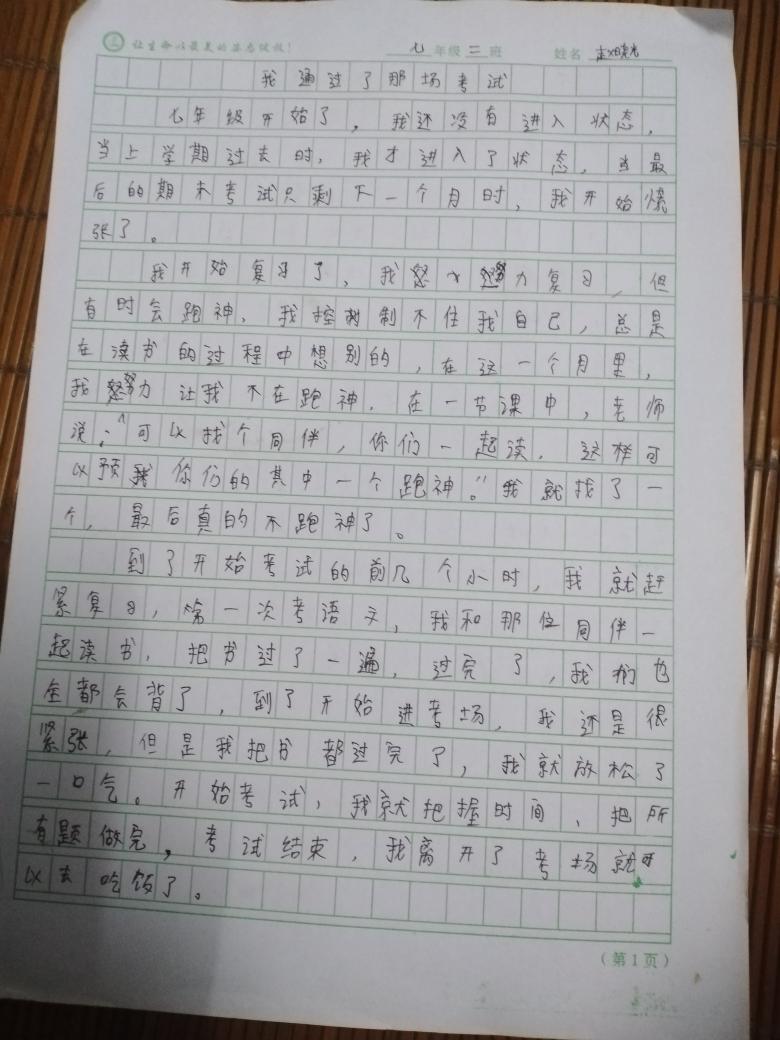 让生命以最美的姿态绽放！ 七年级三班 姓名
我通过了那场考试
七年级开始了，我还没有进入状态，
当上学期过去时，我才进入了状态，当最
后的期末考试只剩下一个月时，我开始慌
张了。
我开始复习了，我努力复习，但
有时会跑神，我控制不住我自己，总是
在读书的过程中想别的，在这一个月里，
我努力让我不在跑神，在一节课中，老师
说："可以找个同伴，你们一起读，这样可
以预我你们的其中一个跑神。"我就找了一
个，最后真的不跑神了。
到了开始考试的前几个小时，我就赶
紧复习，第一次考语文，我和那位同伴一
起读书，把书过了一遍，过完了，我们也
全都会背了，到了开始进考场，我还是很
紧张，但是我把书都过完了，我就放松了
一口气。开始考试，我就把握时间，把所
有题做完，考试结束，我离开了考场就可
以去吃饭了。
（第1页）